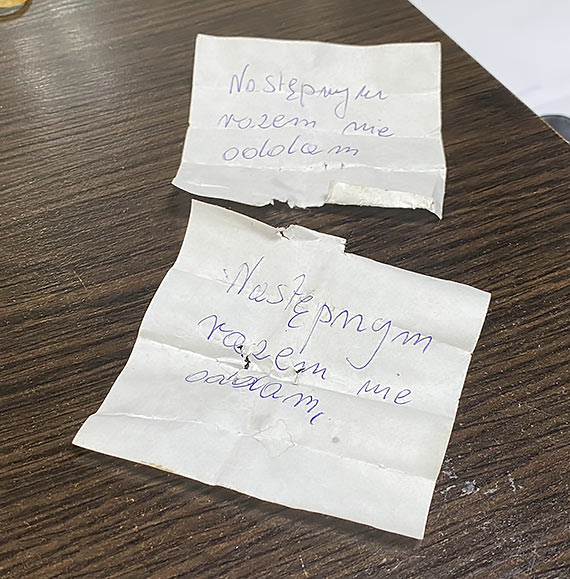 Następnym
razem nie
oddam
Następnym
razem nie
oddam,